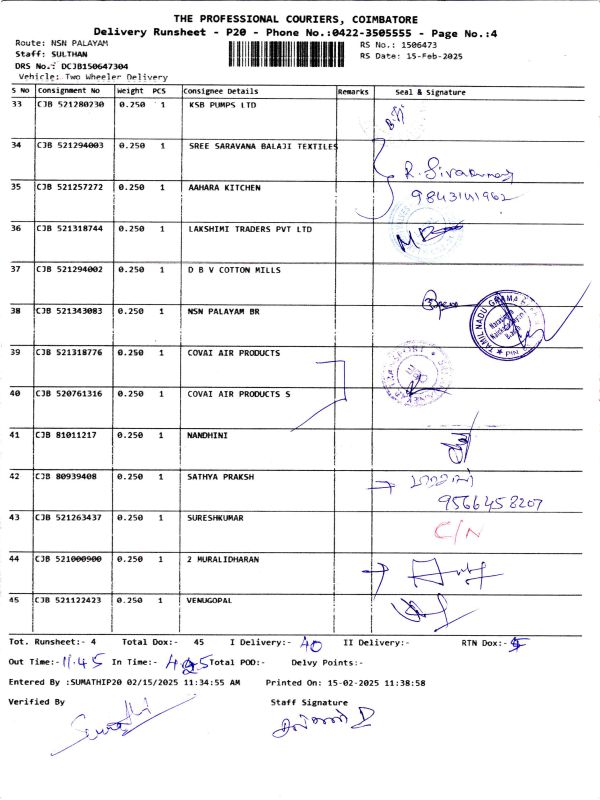 THE PROFESSIONAL COURIERS, COIMBATORE
Delivery Runsheet - P20 - Phone No.:0422-3505555 - Page No.:4
Route: NSN PALAYAM
RS No.: 1506473
Staff: SULTHAN
RS Date: 15-Feb-2025
DRS No.: DCJB150647304
Vehicle: Two Wheeler Delivery
S No Consignment No Weight PCS Consignee Details Remarks Seal & Signature
33 CJB 521280230 0.250 1 KSB PUMPS LTD
34 CJB 521294003 0.250 1 SREE SARAVANA BALAJI TEXTILES
R. Sivakumar
35 CJB 521257272 0.250 1 AAHARA KITCHEN
9843141962
36 CJB 521318744 0.250 1 LAKSHIMI TRADERS PVT LTD
37 CJB 521294002 0.250 1 D B V COTTON MILLS
38 CJB 521343083 0.250 1 NSN PALAYAM BR
TAMIL NADU GRAMA
39 CJB 521318776 0.250 1 COVAI AIR PRODUCTS
40 CJB 520761316 0.250 1 COVAI AIR PRODUCTS S
41 CJB 81011217 0.250 1 NANDHINI
42 CJB 80939408 0.250 1 SATHYA PRAKSH
9566458207
43 CJB 521263437 0.250 1 SURESHKUMAR C/N
44 CJB 521000900 0.250 1 2 MURALIDHARAN
45 CJB 521122423 0.250 1 VENUGOPAL
Tot. Runsheet:- 4 Total Dox:- 45 I Delivery:- 40 II Delivery:- RTN Dox:- 5
Out Time:- 11.45 In Time:- Total POD:- Delvy Points:-
Entered By :SUMATHIP20 02/15/2025 11:34:55 AM Printed On: 15-02-2025 11:38:58
Verified By Staff Signature
Sumathi